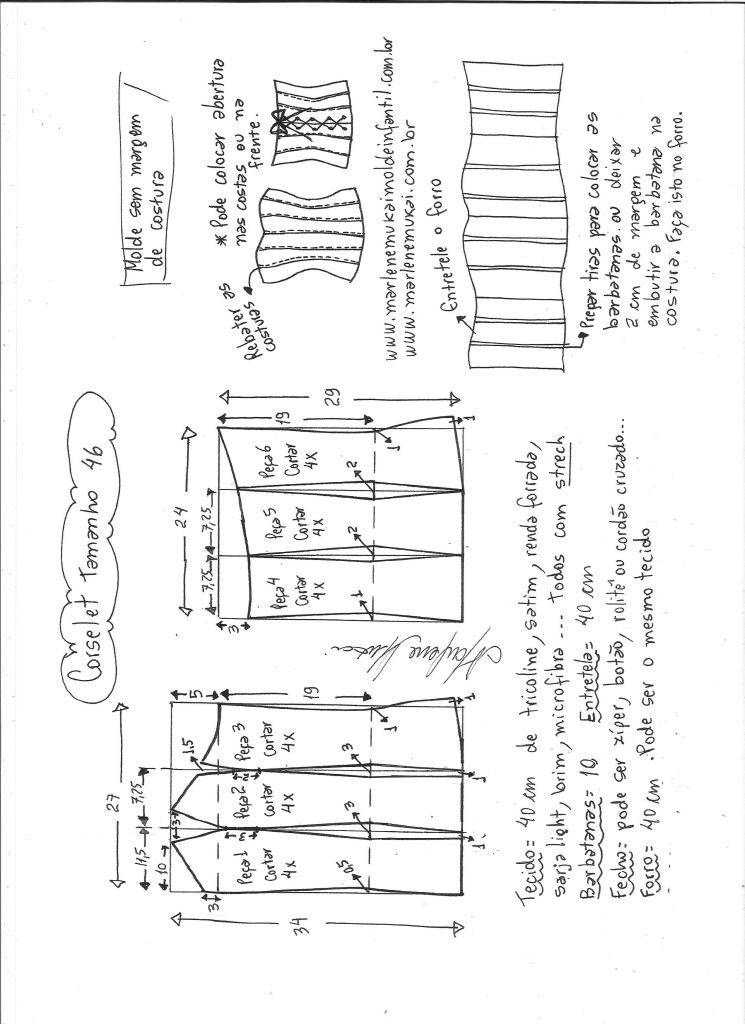 Corselet Tamanho 46
Molde sem margem
de costura
27
11,5
7,25
10
3
5
1,5
3
34
19
Peça 1
Cortar
4x
Peça 2
Cortar
4x
Peça 3
Cortar
4x
3
2
0,5
3
3
1
1
1
1
24
7,25
7,25
3
Peça 4
Cortar
4x
Peça 5
Cortar
4x
Peça 6
Cortar
4x
19
29
1
2
2
1
1
* Pode colocar abertura
nas costas ou na
frente.
Rebater as
costuras
www.marlenemukaimoldeinfantil.com.br
www.marlenemukai.com.br
Entretele o forro
Prepar tiras para colocar as
barbatanas ou deixar
2 cm de margem e
embutir a barbatana na
costura. Faça isto no forro.
Tecido= 40 cm de tricoline, satim, renda forrada,
sarja light, brim, microfibra... Todos com strech
Barbatanas= 10 Entretela= 40 cm
Fecho= pode ser xíper, botão, rolitê ou cordão cruzado...
Forro= 40 cm. Pode ser o mesmo tecido